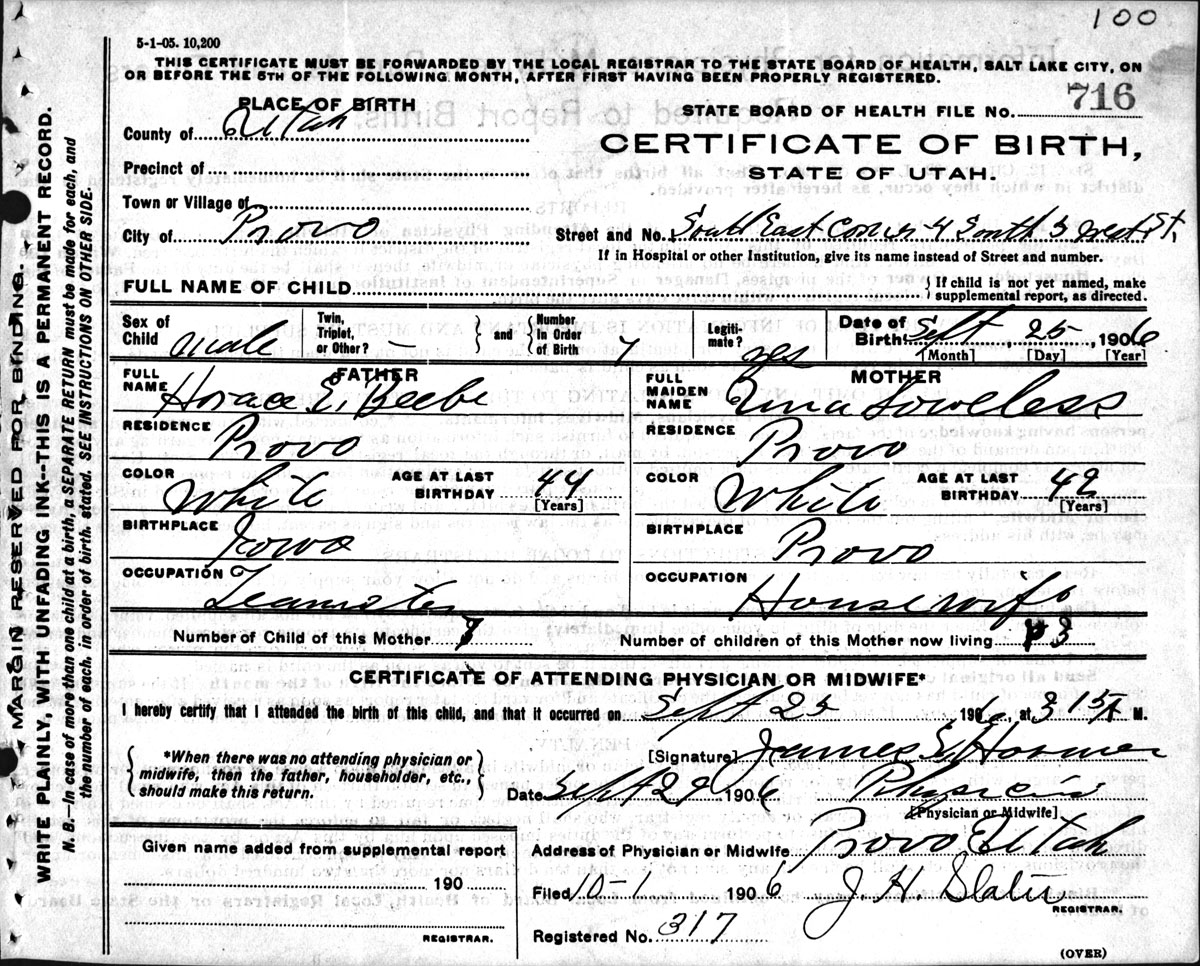 100
5-1-05. 10,200
THIS CERTIFICATE MUST BE FORWARDED BY THE LOCAL REGISTRAR TO THE STATE BOARD OF HEALTH, SALT LAKE CITY, ON
OR BEFORE THE 5TH OF THE FOLLOWING MONTH, AFTER FIRST HAVING BEEN PROPERLY REGISTERED.
PLACE OF BIRTH
STATE BOARD OF HEALTH FILE No. 716
County of Utah
CERTIFICATE OF BIRTH,
STATE OF UTAH.
Precinct of
Town or Village of
City of Provo
Street and No. South East Corner 4 South 5 West St.
If in Hospital or other Institution, give its name instead of Street and number.
FULL NAME OF CHILD
{ If child is not yet named, make
supplemental report, as directed.
Sex of Child male
Twin, Triplet, or Other? –
and { Number in Order of Birth 7
Legitimate? yes
Date of Birth Sept 25, 1906
[Month] [Day] [Year]
FATHER
FULL NAME Horace E. Beebe
RESIDENCE Provo
COLOR White
AGE AT LAST BIRTHDAY 44 [Years]
BIRTHPLACE Iowa
OCCUPATION Teamster
MOTHER
FULL MAIDEN NAME Loveless
RESIDENCE Provo
COLOR White
AGE AT LAST BIRTHDAY 42 [Years]
BIRTHPLACE Provo
OCCUPATION Housewife
Number of Child of this Mother 7
Number of children of this Mother now living 3
CERTIFICATE OF ATTENDING PHYSICIAN OR MIDWIFE*
I hereby certify that I attended the birth of this child, and that it occurred on Sept 25 1906, at 3 15 A M.
{ *When there was no attending physician or
midwife, then the father, householder, etc.,
should make this return. }
[Signature] James E.
Date Sept 29 1906 Physician
[Physician or Midwife]
Given name added from supplemental report
190
REGISTRAR.
Address of Physician or Midwife Provo Utah
Filed 10-1 1906 J. H. Slater
REGISTRAR.
Registered No. 317
(OVER)
MARGIN RESERVED FOR BINDING.
WRITE PLAINLY, WITH UNFADING INK--THIS IS A PERMANENT RECORD.
N. B.—In case of more than one child at a birth, a SEPARATE RETURN must be made for each, and
the number of each, in order of birth, stated. SEE INSTRUCTIONS ON OTHER SIDE.